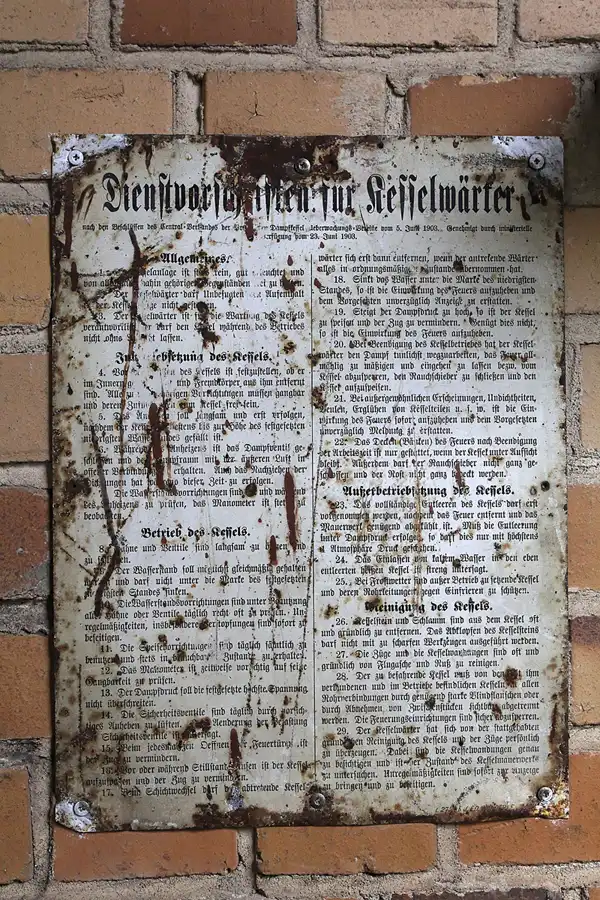 Dienstvorschriften für Kesselwärter
nach den Beschlüssen des Central-Verbandes der Dampfkessel Ueberwachungs-Vereine vom 5. Juni 1903. Genehmigt durch ministerielle
Verfügung vom 23. Juni 1903.
Allgemeines.
1. Die Kesselanlage ist stets rein, gut erleuchtet und
von allen nicht dahin gehörigen Gegenständen frei zu halten.
2. Der Kesselwärter darf Unbefugten den Aufenthalt
in der Kesselanlage nicht gestatten.
3. Der Kesselwärter ist für die Wartung des Kessels
verantwortlich; er darf den Kessel während des Betriebes
nicht ohne Aufsicht lassen.
Inbetriebsetzung des Kessels.
4. Vor dem Füllen des Kessels ist festzustellen, ob er
im Inneren gereinigt und Fremdkörper aus ihm entfernt
sind. Alle zugehörigen Vorrichtungen müssen gangbar
und deren Zuführungen zum Kessel frei sein.
5. Das Anheizen soll langsam und erst erfolgen,
nachdem der Kessel mindestens bis zur Höhe des festgesetzten
niedrigsten Wasserstandes gefüllt ist.
6. Während des Anheizens ist das Dampfventil ge-
schlossen und der Dampfraum mit der äußeren Luft in
offener Verbindung zu erhalten. Auch das Nachziehen der
Dichtungen hat während dieser Zeit zu erfolgen.
7. Die Wasserstandsvorrichtungen sind vor und während
des Anheizens zu prüfen, das Manometer ist stets zu
beobachten.
Betrieb des Kessels.
8. Hähne und Ventile sind langsam zu öffnen und
zu schließen.
9. Der Wasserstand soll möglichst gleichmäßig gehalten
werden und darf nicht unter die Marke des festgesetzten
niedrigsten Standes sinken.
10. Die Wasserstandsvorrichtungen sind unter Benutzung
aller Hähne oder Ventile täglich recht oft zu prüfen. Un-
regelmäßigkeiten, insbesondere Verstopfungen sind sofort zu
beseitigen.
11. Die Speisevorrichtungen sind täglich sämtlich zu
benutzen und stets in brauchbarem Zustande zu erhalten.
12. Das Manometer ist zeitweise vorsichtig auf seine
Gangbarkeit zu prüfen.
13. Der Dampfdruck soll die festgesetzte höchste Spannung
nicht überschreiten.
14. Die Sicherheitsventile sind täglich durch vorsich-
tiges Anheben zu lüften. Jede Aenderung der Belastung
der Sicherheitsventile ist untersagt.
15. Beim jedesmaligen Oeffnen der Feuertüren ist
der Zug zu vermindern.
16. Vor oder während Stillstandspausen ist der Kessel
aufzuspeisen und der Zug zu vermindern.
17. Beim Schichtwechsel darf der abtretende Kessel-
wärter sich erst dann entfernen, wenn der antretende Wärter
alles in ordnungsmäßigem Zustande übernommen hat.
18. Sinkt das Wasser unter die Marke des niedrigsten
Standes, so ist die Einwirkung des Feuers aufzuheben und
dem Vorgesetzten unverzüglich Anzeige zu erstatten.
19. Steigt der Dampfdruck zu hoch, so ist der Kessel
zu speisen und der Zug zu vermindern. Genügt dies nicht,
so ist die Einwirkung des Feuers aufzuheben.
20. Bei Beendigung des Kesselbetriebes hat der Kessel-
wärter den Dampf tunlichst wegzuarbeiten, das Feuer all-
mählig zu mäßigen und eingehen zu lassen bezw. vom
Kessel abzusperren, den Rauchschieber zu schließen und den
Kessel aufzuspeisen.
21. Bei außergewöhnlichen Erscheinungen, Undichtheiten,
Beulen, Erglühen von Kesselteilen u. s. w. ist die Ein-
wirkung des Feuers sofort aufzuheben und dem Vorgesetzten
unverzüglich Meldung zu erstatten.
22. Das Decken (Bänken) des Feuers nach Beendigung
der Arbeitszeit ist nur gestattet, wenn der Kessel unter Aufsicht
bleibt. Außerdem darf der Rauchschieber nicht ganz ge-
schlossen und der Rost nicht ganz bedeckt werden.
Außerbetriebsetzung des Kessels.
23. Das vollständige Entleeren des Kessels darf erst
vorgenommen werden, nachdem das Feuer entfernt und das
Mauerwerk genügend abgekühlt ist. Muß die Entleerung
unter Dampfdruck erfolgen, so darf dies nur mit höchstens
1 Atmosphäre Druck geschehen.
24. Das Einlassen von kaltem Wasser in den eben
entleerten heißen Kessel ist streng untersagt.
25. Bei Frostwetter sind außer Betrieb zu setzende Kessel
und deren Rohrleitungen gegen Einfrieren zu schützen.
Reinigung des Kessels.
26. Kesselstein und Schlamm sind aus dem Kessel oft
und gründlich zu entfernen. Das Abklopfen des Kesselsteins
darf nicht mit zu scharfen Werkzeugen ausgeführt werden.
27. Die Züge und die Kesselwandungen sind oft und
gründlich von Flugasche und Ruß zu reinigen.
28. Der zu befahrende Kessel muß von den mit ihm
verbundenen und im Betriebe befindlichen Kesseln in allen
Rohrverbindungen durch genügend starke Blindflanschen oder
durch Abnehmen von Zwischenstücken sichtbar abgetrennt
werden. Die Feuerungseinrichtungen sind sicher abzusperren.
29. Der Kesselwärter hat sich von der stattgehabten
gründlichen Reinigung des Kessels und der Züge persönlich
zu überzeugen. Dabei sind die Kesselwandungen genau
zu besichtigen und ist der Zustand des Kesselmauerwerks
zu untersuchen. Unregelmäßigkeiten sind sofort zur Anzeige
zu bringen und zu beseitigen.